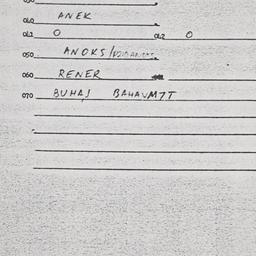 040 ANEK
041 O 042 O
050 ANOKS/
060 RENER
070 BUHAJ BAHAVMTT